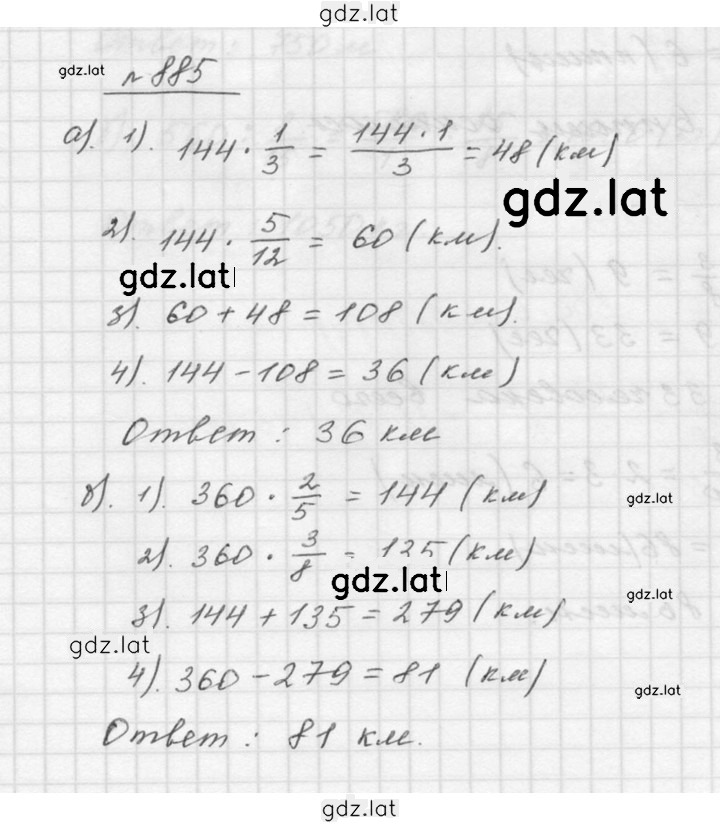 gdz.lat
gdz.lat
№ 885
а). 1). 144 · 1/3 = 144 · 1/3 = 48 (км)
gdz.lat
2). 144 · 5/12 = 60 (км).
gdz.lat
3). 60 + 48 = 108 (км).
4). 144 - 108 = 36 (км)
Ответ : 36 км
б). 1). 360 · 2/5 = 144 (км)
gdz.lat
2). 360 · 3/8 = 125 (км)
gdz.lat
gdz.lat
3). 144 + 135 = 279 (км)
gdz.lat
4). 360 - 279 = 81 (км)
gdz.lat
Ответ : 81 км.
gdz.lat